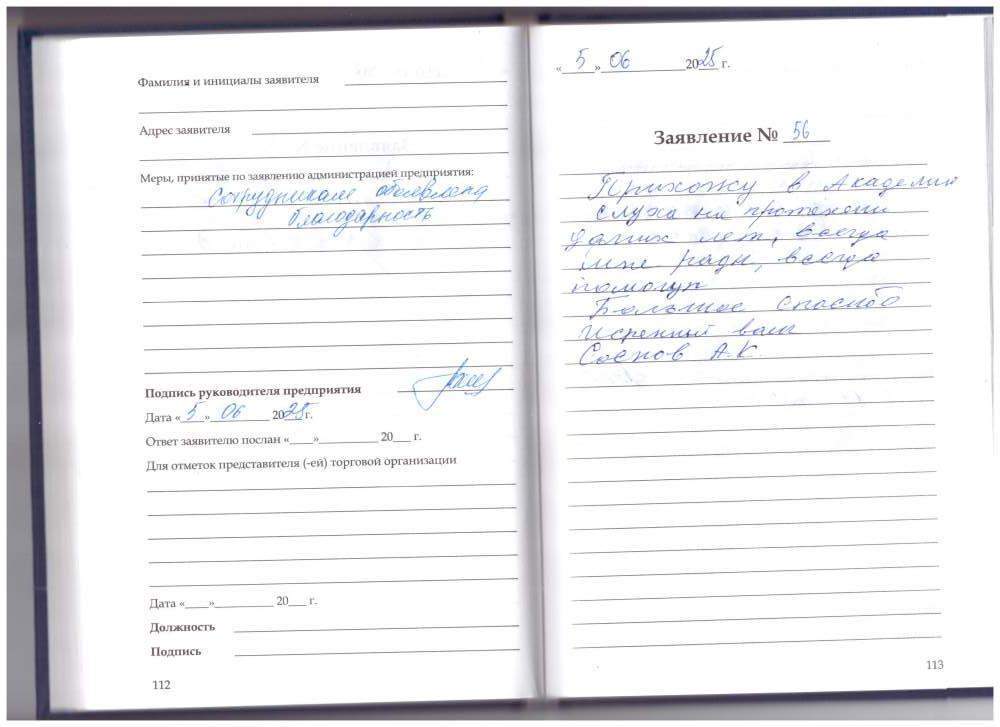 Фамилия и инициалы заявителя
Адрес заявителя
Меры, принятые по заявлению администрацией предприятия:
Сотрудникам объявлена
благодарность
Подпись руководителя предприятия
Дата «5» 06 2025 г.
Ответ заявителю послан «____»__________ 20___ г.
Для отметок представителя (-ей) торговой организации
Дата «____»__________ 20___ г.
Должность
Подпись
112
«5» 06 2025 г.
Заявление № 56
Прихожу в Академию
слуха на протяжени
долгих лет, всегда
мне рады, всегда
помогут
Большое спасибо
Искренний ваш
А.К.
113